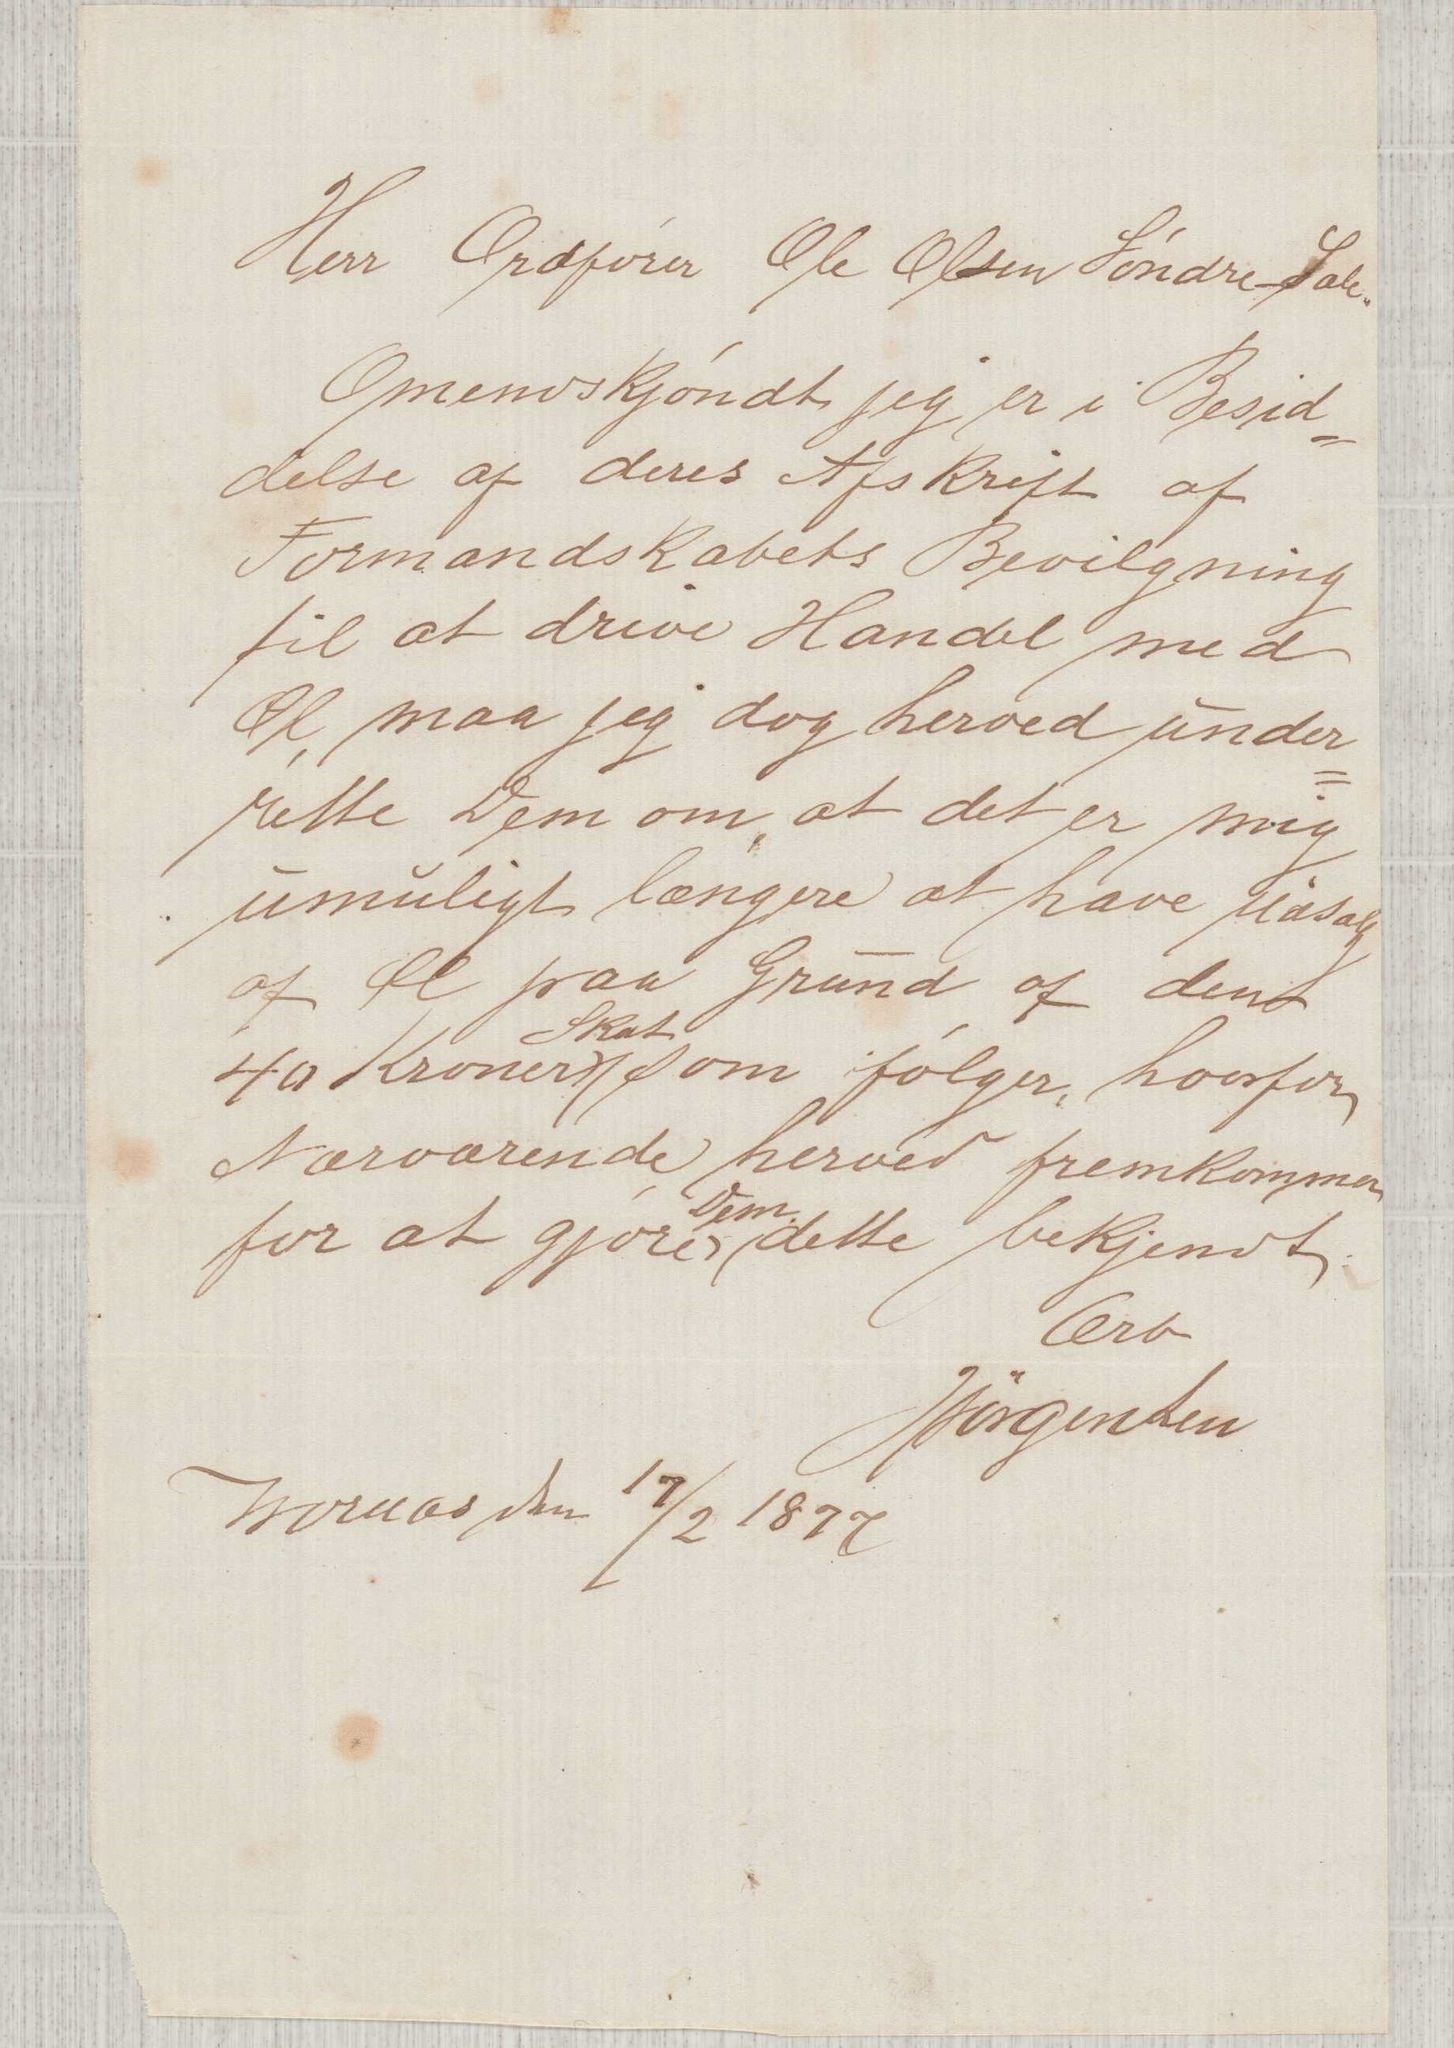 Herr Ordfører Ole Olsen Søndre-Sale.
Omendskjøndt jeg er i Besid=
delse af deres Afskrift af
Formandskabets Bevilgning
til at drive Handel med
Øl, maa jeg dog herved under=
rette Dem om, at det er mig
umuligt længere at have Udsalg
af Øl paa Grund af den
40 Kroners Skat som følger, hvorfor
Nærværende herved fremkommer
for at gjøre Dem dette bekjendt.
Ærb
Jörgensen
den 17/2 1877